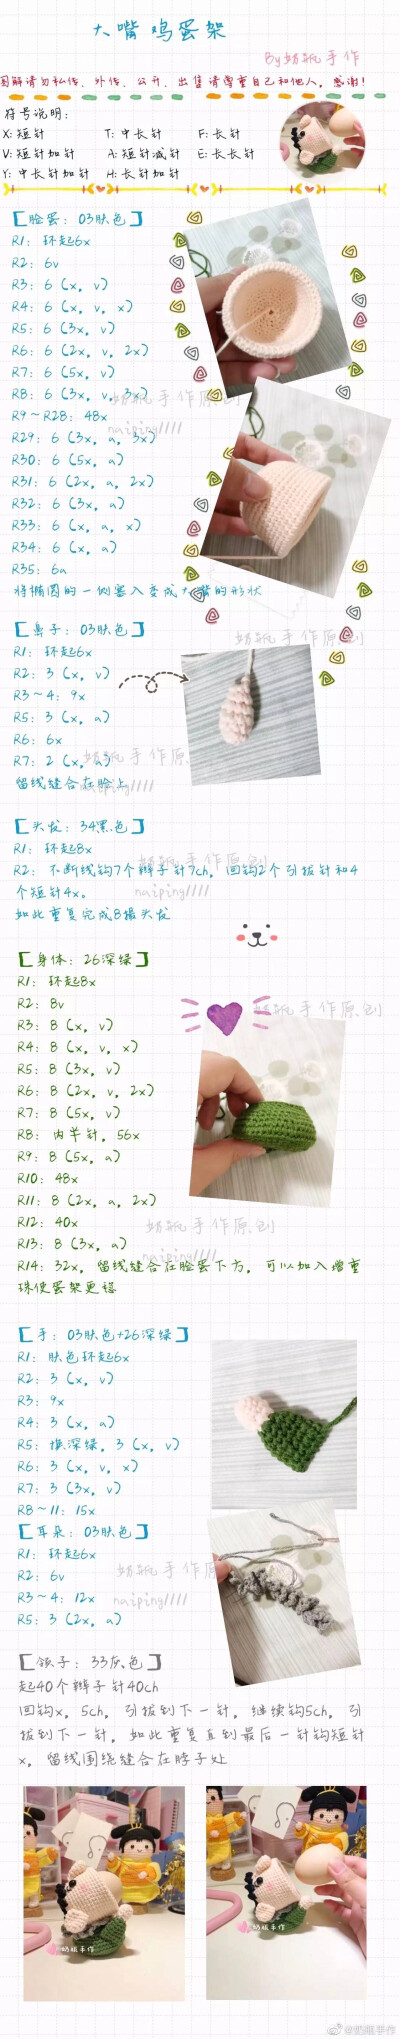 大嘴鸡蛋架
By奶瓶手作
图解请勿私传、外传、公开、出售请尊重自己和他人，感谢！
符号说明：
X：短针 T：中长针 F：长针
V：短针加针 A：短针减针 E：长长针
Y：中长针加针 H：长针加针
【脸蛋：03肤色】
R1：环起6x
R2：6v
R3：6（x，v）
R4：6（x，v，x）
R5：6（3x，v）
R6：6（2x，v，2x）
R7：6（5x，v）
R8：6（3x，v，3x）
R9~R28：48x
R29：6（3x，a，3x）
R30：6（5x，a）
R31：6（2x，a，2x）
R32：6（3x，a）
R33：6（x，a，x）
R34：6（x，a）
R35：6a
将椭圆的一侧塞入变成大嘴的形状
奶瓶手作原创
naiping////
【鼻子：03肤色】
R1：环起6x
R2：3（x，v）
R3~4：9x
R5：3（x，a）
R6：6x
R7：2（x，a）
留线缝合在脸上
奶瓶手作原创
naiping////
【头发：34黑色】
R1：环起8x
R2：不断线钩7个辫子针7ch，回钩2个引拔针和4
个短针4x。
如此重复完成8撮头发
奶瓶手作原创
naiping////
【身体：26深绿】
R1：环起8x
R2：8v
R3：8（x，v）
R4：8（x，v，x）
R5：8（3x，v）
R6：8（2x，v，2x）
R7：8（5x，v）
R8：内半针，56x
R9：8（5x，a）
R10：48x
R11：8（2x，a，2x）
R12：40x
R13：8（3x，a）
R14：32x，留线缝合在脸蛋下方，可以加入增重
珠使蛋架更稳
奶瓶手作原创
naiping////
【手：03肤色+26深绿】
R1：肤色环起6x
R2：3（x，v）
R3：9x
R4：3（x，a）
R5：换深绿，3（x，v）
R6：3（x，v，x）
R7：3（3x，v）
R8~11：15x
【耳朵：03肤色】
R1：环起6x
R2：6v
R3~4：12x
R5：3（2x，a）
奶瓶手作原创
naiping////
【领子：33灰色】
起40个辫子针40ch
回钩x，5ch，引拔到下一针，继续钩5ch，引
拔到下一针，如此重复直到最后一针钩短针
x，留线围绕缝合在脖子处
奶瓶手作
奶瓶手作
@奶瓶手作